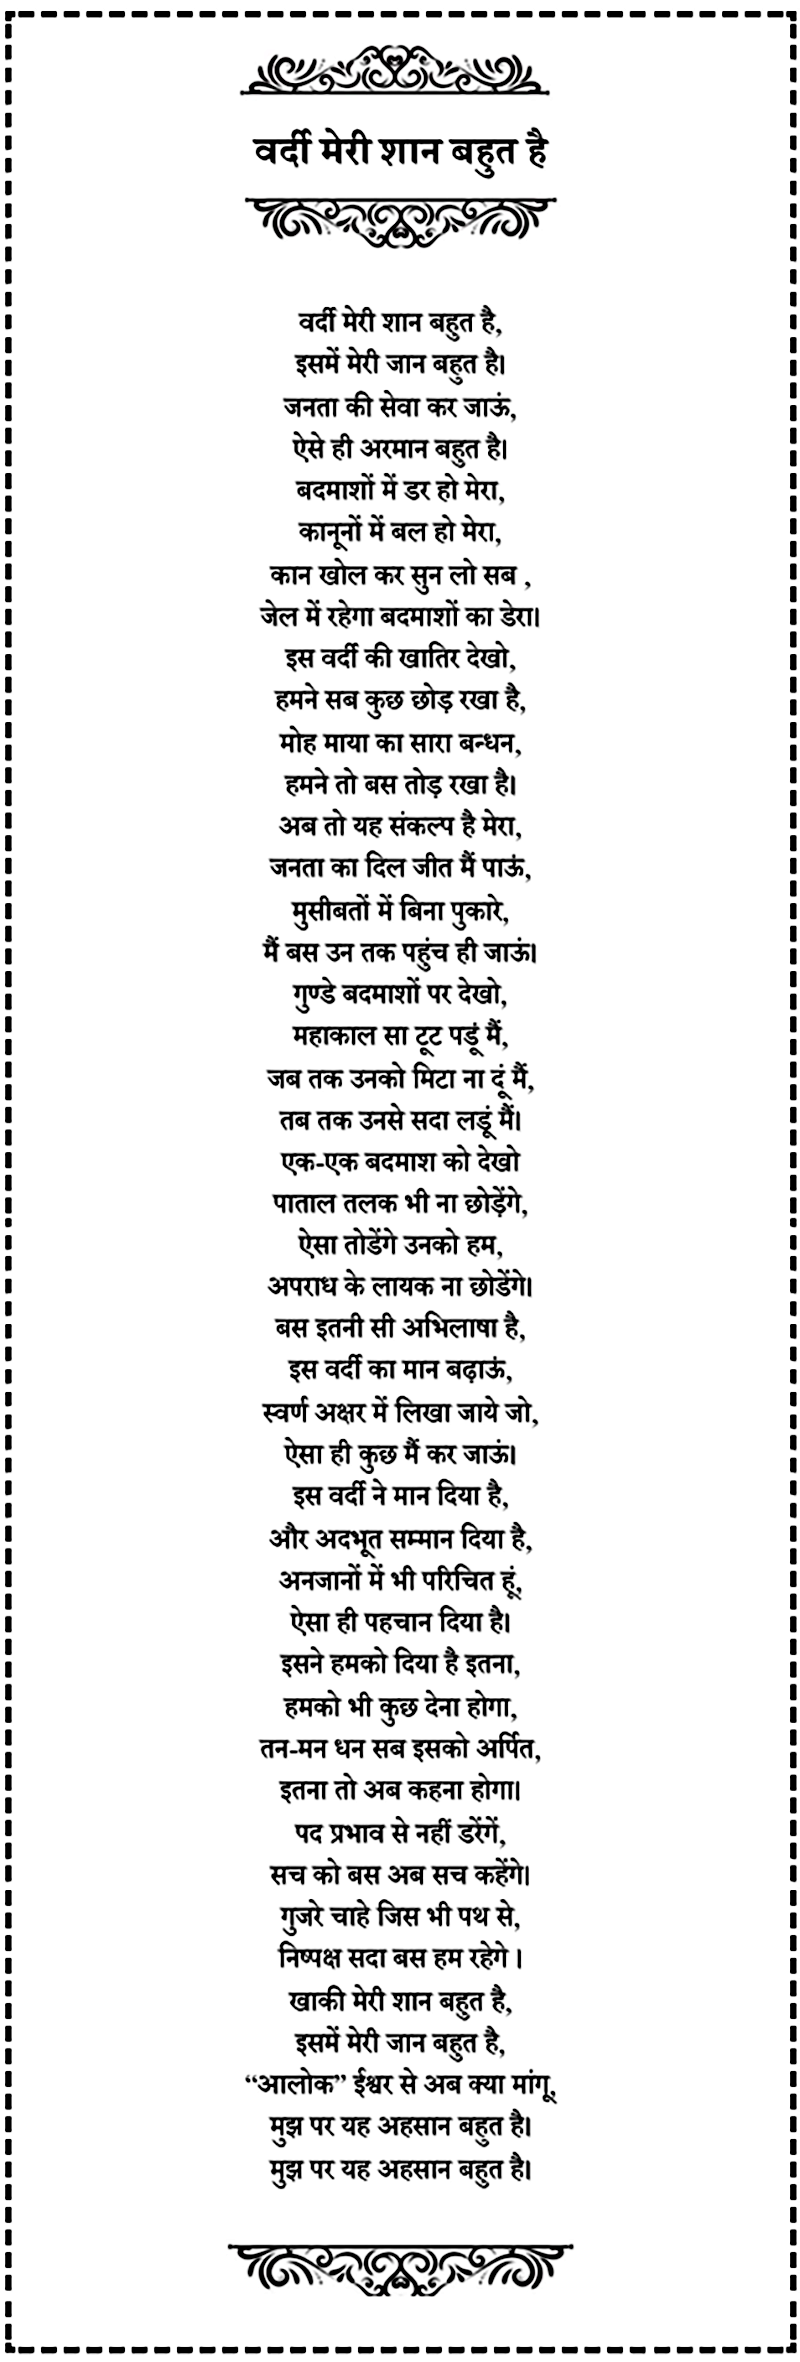 वर्दी मेरी शान बहुत है
वर्दी मेरी शान बहुत है,
इसमें मेरी जान बहुत है।
जनता की सेवा कर जाऊं,
ऐसे ही अरमान बहुत है।
बदमाशों में डर हो मेरा,
कानूनों में बल हो मेरा,
कान खोल कर सुन लो सब ,
जेल में रहेगा बदमाशों का डेरा।
इस वर्दी की खातिर देखो,
हमने सब कुछ छोड़ रखा है,
मोह माया का सारा बन्धन,
हमने तो बस तोड़ रखा है।
अब तो यह संकल्प है मेरा,
जनता का दिल जीत मैं पाऊं,
मुसीबतों में बिना पुकारे,
मैं बस उन तक पहुंच ही जाऊं।
गुण्डे बदमाशों पर देखो,
महाकाल सा टूट पडूं मैं,
जब तक उनको मिटा ना दूं मैं,
तब तक उनसे सदा लडूं मैं।
एक-एक बदमाश को देखो
पाताल तलक भी ना छोड़ेंगे,
ऐसा तोडेंगे उनको हम,
अपराध के लायक ना छोडेंगे।
बस इतनी सी अभिलाषा है,
इस वर्दी का मान बढ़ाऊं,
स्वर्ण अक्षर में लिखा जाये जो,
ऐसा ही कुछ मैं कर जाऊं।
इस वर्दी ने मान दिया है,
और अदभूत सम्मान दिया है,
अनजानों में भी परिचित हूं,
ऐसा ही पहचान दिया है।
इसने हमको दिया है इतना,
हमको भी कुछ देना होगा,
तन-मन धन सब इसको अर्पित,
इतना तो अब कहना होगा।
पद प्रभाव से नहीं डरेंगें,
सच को बस अब सच कहेंगे।
गुजरे चाहे जिस भी पथ से,
निष्पक्ष सदा बस हम रहेगे ।
खाकी मेरी शान बहुत है,
इसमें मेरी जान बहुत है,
“आलोक” ईश्वर से अब क्या मांगू,
मुझ पर यह अहसान बहुत है।
मुझ पर यह अहसान बहुत है।